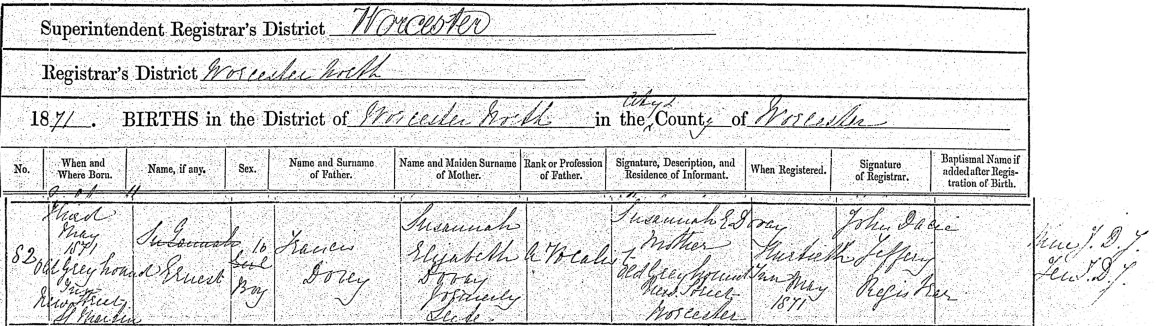 Superintendent Registrar's District Worcester
Registrar's District Worcester North
1871. BIRTHS in the District of Worcester North in the City & County of Worcester
No. When and Where Born. Name, if any. Sex. Name and Surname of Father. Name and Maiden Surname of Mother. Rank or Profession of Father. Signature, Description, and Residence of Informant. When Registered. Signature of Registrar. Baptismal Name if added after Registration of Birth.
82
Third
May
1871
Old Greyhound
Inn
New Street
St Martin
Susannah
Ernest
10
Girl
Boy
Francis
Dovey
Susannah
Elizabeth
Dovey
formerly
A Vocalist
Susannah E Dovey
Mother
Old Greyhound Inn
New Street
Worcester
Thirtieth
May
1871
John Davie
Jeffery
Registrar
Nine J. D. J.
Ten J. D. J.